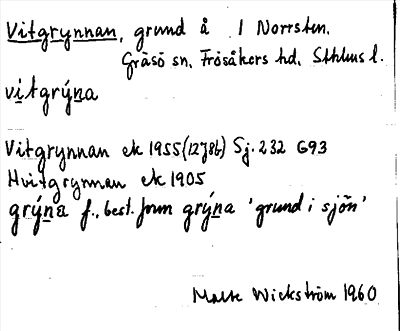 Vitgrynnan, grund å I Norrsten.
Gräsö sn. Frösåkers hd. Sthlms l.
vitgrýna
Vitgrynnan ek 1955 (12J8b) Sj. 232 G93
Hvitgrynnan ek 1905
grýna f., best. form grýna 'grund i sjön'
Malte Wickström 1960